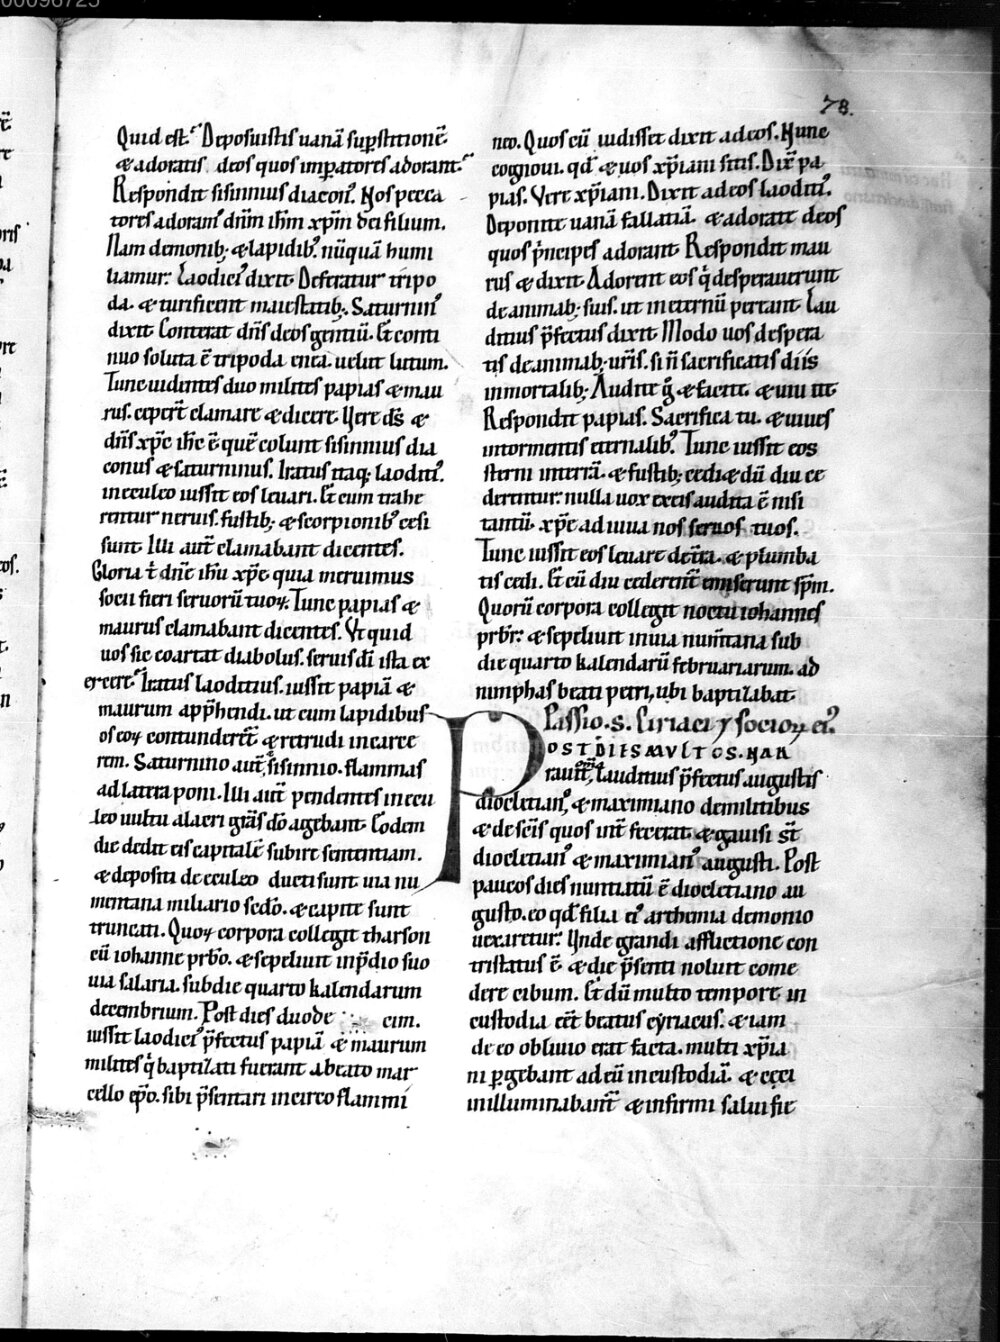 78.
Quid est? Deposuistis uanā sup̄stitionē
& adoratis deos quos imp̄atores adorant?
Respondit sisinnius diacon᷒. Nos pecca
tores adoram᷒ dn̄m ih̄m xp̄m dei filium.
Nam demonib; & lapidib᷒ nūquā humi
liamur. Laodici᷒ dixit Deferatur tripo
da. & turificent maiestatib;. Saturnin᷒
dixit Conterat dn̄s deos gentiū. Et conti
nuo soluta ē tripoda enea. uelut lutum.
Tunc uidentes duo milites papias & mau
rus. ceper̄t clamare & dicere. Vere ds̄ &
dn̄s xp̄c ih̄c ē quē colunt sisinnius dia
conus & saturninus. Iratus itaq; laodici᷒.
in eculeo iussit eos leuari. Et cum trahe
rentur neruis. fustib; & scorpionib᷒ cesi
sunt. Illi aut̄ clamabant dicentes.
Gloria t̄ dn̄e ih̄u xp̄e quia meruimus
socii fieri seruorū tuoꝝ. Tunc papias &
maurus clamabant dicentes. Vt quid
uos sic coartat diabolus. seruis dī ista ex
ercere? Iratus laodicius. iussit papiā &
maurum app̄hendi. ut cum lapidibus
os eoꝝ contunderet̄ & retrudi in carce
rem. Saturnino aut̄ & sisinnio. flammas
ad latera poni. Illi aut̄ pendentes in ecu
leo uultu alacri grās dō agebant. Eodem
die dedit eis capitalē subire sententiam.
& depositi de eculeo ducti sunt uia nu
mentana miliario sedō. & capite sunt
truncati. Quoꝝ corpora collegit tharson
cū iohanne prbō. & sepeliuit in p̄dio suo
uia salaria. sub die quarto kalendarum
decembrium. Post dies duode cim.
iussit laodici᷒ p̄fectus papiā & maurum
milites q̄ baptizati fuerant a beato mar
cello ep̄o. sibi p̄sentari in circo flammi
neo. Quos cū uidisset dixit ad eos. Nunc
cognoui. qd̄ & uos xp̄iani sitis. Dix̄ pa
pias. Vere xp̄iani. Dixit ad eos laodici᷒.
Deponite uanā fallaciā. & adorate deos
quos p̄ncipes adorant. Respondit mau
rus & dixit. Adorent eos q̄ desperauerunt
de animab; suis. ut in eternū pereant. Lau
dicius p̄fectus dixit Modo uos despera
tis de animab; ur̄is. si n̄ sacrificatis diis
inmortalib; Audite ḡ & facite. & uiuite
Respondit papias. Sacrifica tu. & uiues
in tormentis eternalib᷒. Tunc iussit eos
sterni in terrā. & fustib; cedi & dū diu ce
derentur. nulla uox ex eis audita ē nisi
tantū. xp̄e adiuua nos seruos tuos.
Tunc iussit eos leuare de t̄ra. & plumba
tis cedi. Et cū diu cederent̄ emiserunt sp̄m.
Quorū corpora collegit noctu iohannes
prbr̄. & sepeliuit in uia num̄tana sub
die quarto kalendarū februariarum. ad
nimphas beati petri, ubi baptizabat.
Passio .s. Ciriaci ⁊ socioꝝ ei᷒.
POST DIES MVLTOS. NAR
rauit, laudicius p̄fectus augustis
diocletian᷒, & maximiano de militibus
& de sc̄is quos int̄ fecerat. & gauisi st̄
diocletian᷒ & maximian᷒ augusti. Post
paucos dies nuntiatū ē diocletiano au
gusto. eo qd̄ filia ei᷒ arthemia demonio
uexaretur. Vnde grandi afflictione con
tristatus ē. & die p̄senti noluit come
dere cibum. Et dū multo tempore in
custodia eēt beatus cyriacus. & iam
de eo obliuio erat facta. multi xp̄ia
ni p̄gebant ad eū in custodiā. & ceci
inilluminabant̄ & infirmi salui fie